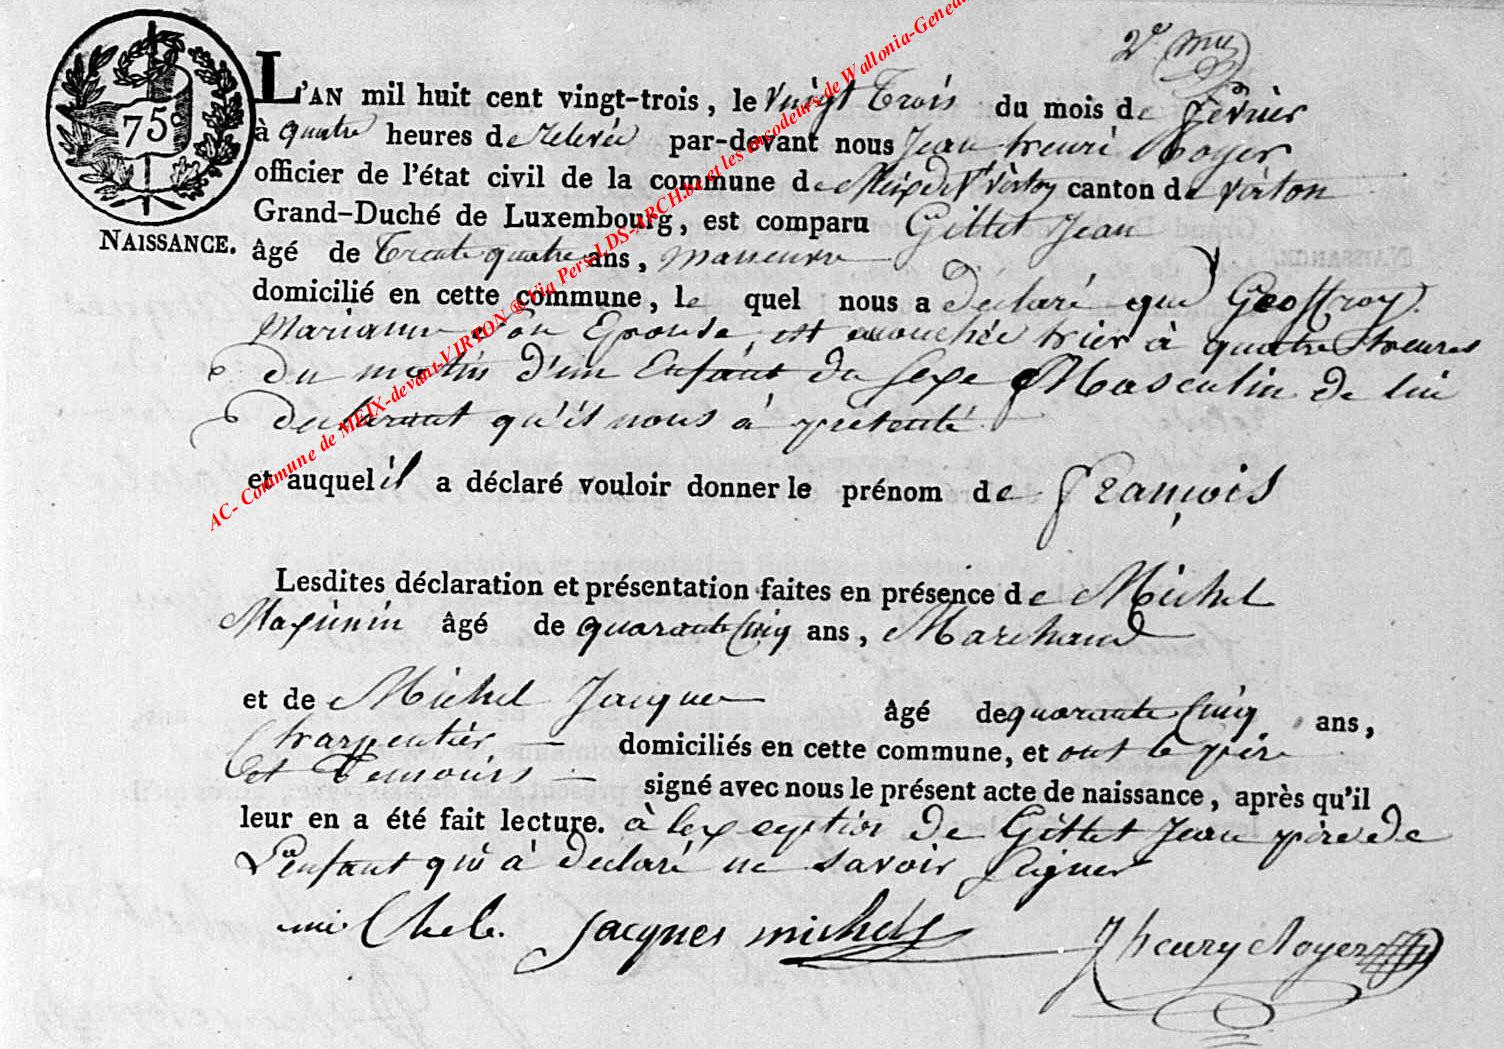 2e mu
75c
NAISSANCE.
L'AN mil huit cent vingt-trois, le vingt Trois du mois de février
à quatre heures de relevée par-devant nous Jean henri Royer
officier de l'état civil de la commune de Meix dt Virton canton de virton
Grand-Duché de Luxembourg, est comparu Gillet Jean
âgé de Trente quatre ans, manœuvre
domicilié en cette commune, le quel nous a declaré que Geoffroy
Marianne son Epouse, est accouchée hier à quatre heures
du matin d'un Enfant du sexe Masculin de lui
declarant qu'il nous à présenté
et auquel il a déclaré vouloir donner le prénom de François
Lesdites déclaration et présentation faites en présence de Michel
âgé de quarante Cinq ans, Marchand
et de Michel Jacques âgé de quarante Cinq ans,
Charpentier domiciliés en cette commune, et ont le père
et Temoins signé avec nous le présent acte de naissance, après qu'il
leur en a été fait lecture. à l'exception de Gillet Jean père de
L'enfant qui à declaré ne savoir signer
jacques michels J henry Royer
AC- Commune de MEIX-devant-VIRTON ® Via Pers LDS-ARCH.be et les encodeurs de Wallonia-Genea